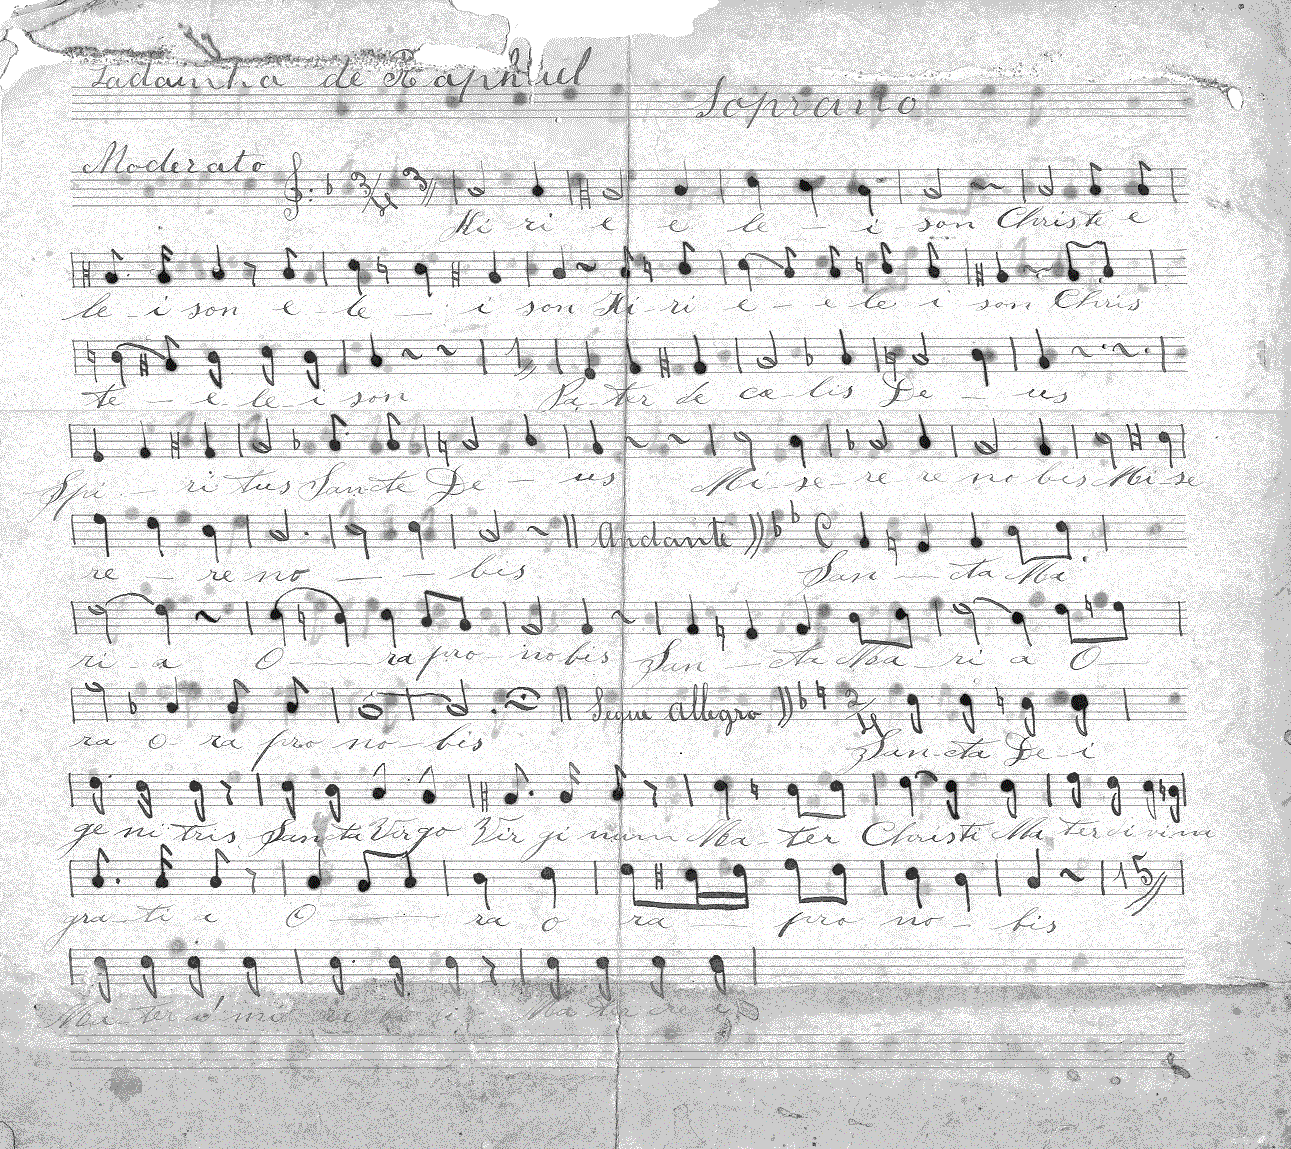 Ladainha de Raphael
Soprano
Moderato 3/4 3
Ki ri e e le - i son Christe e
le - i son e - le - i son Ki - ri e - e le i son Chris
te - e le - i son Pa - ter de cœ - lis De - us
Spi - ri tus Sancte De - us Mi - se - re re no bis Mi - se
re - re no - - - bis Andante C San - cta Ma
ri - a O - ra pro - no bis San - cta Ma - ri a O
ra o - ra pro no - bis Segue Allegro 2/4 San - cta De - i
ge ni - tris Sancta Virgo Vir gi num Ma - ter Christi Ma ter divina
gra - ti e O - ra o ra - pro no - bis 15
Ma - ter